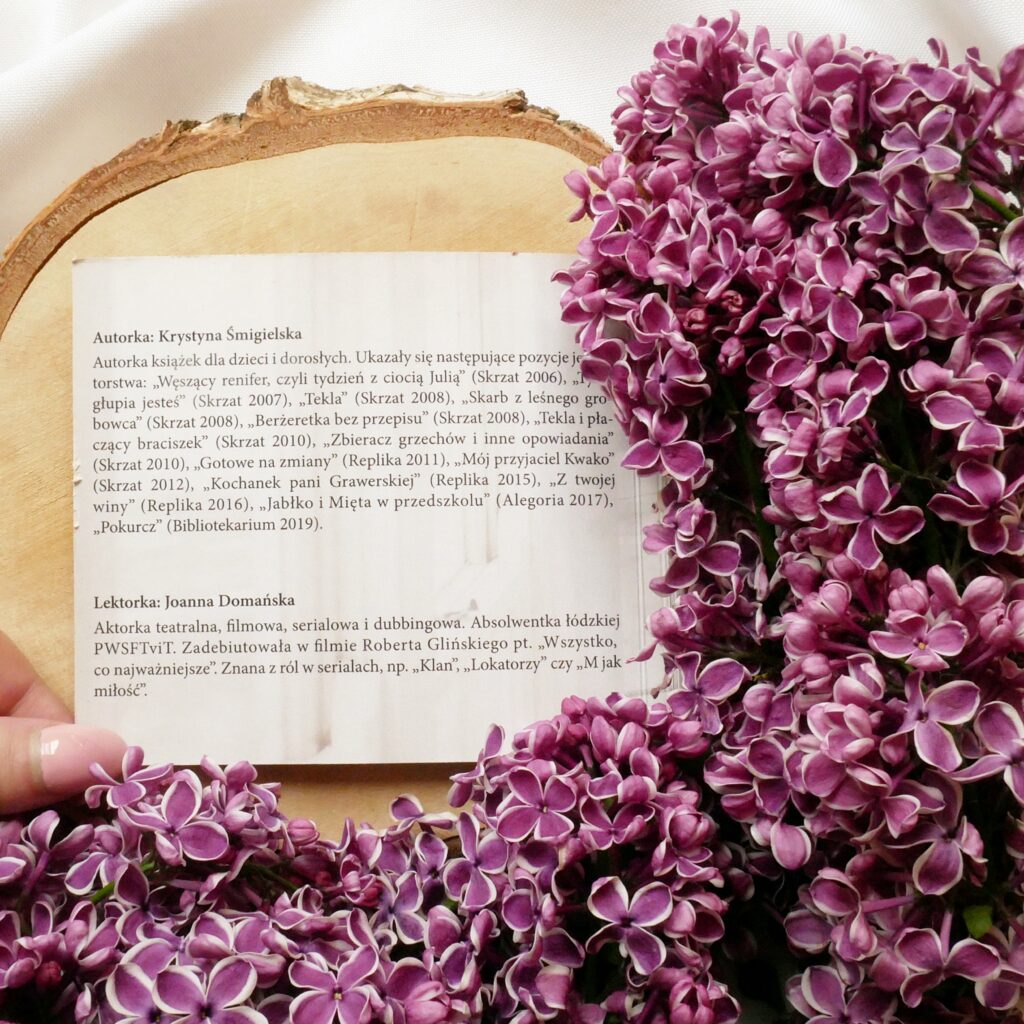 Autorka: Krystyna Śmigielska
Autorka książek dla dzieci i dorosłych. Ukazały się następujące pozycje
torstwa: „Węszący renifer, czyli tydzień z ciocią Julią” (Skrzat 2006),
głupia jesteś” (Skrzat 2007), „Tekla” (Skrzat 2008), „Skarb z leśnego gro-
bowca” (Skrzat 2008), „Berżeretka bez przepisu” (Skrzat 2008), „Tekla i pła-
czący braciszek” (Skrzat 2010), „Zbieracz grzechów i inne opowiadania”
(Skrzat 2010), „Gotowe na zmiany” (Replika 2011), „Mój przyjaciel Kwako”
(Skrzat 2012), „Kochanek pani Grawerskiej” (Replika 2015), „Z twojej
winy” (Replika 2016), „Jabłko i Mięta w przedszkolu” (Alegoria 2017),
„Pokurcz” (Bibliotekarium 2019).
Lektorka: Joanna Domańska
Aktorka teatralna, filmowa, serialowa i dubbingowa. Absolwentka łódzkiej
PWSFTviT. Zadebiutowała w filmie Roberta Glińskiego pt. „Wszystko,
co najważniejsze”. Znana z ról w serialach, np. „Klan”, „Lokatorzy” czy „M jak
miłość”.